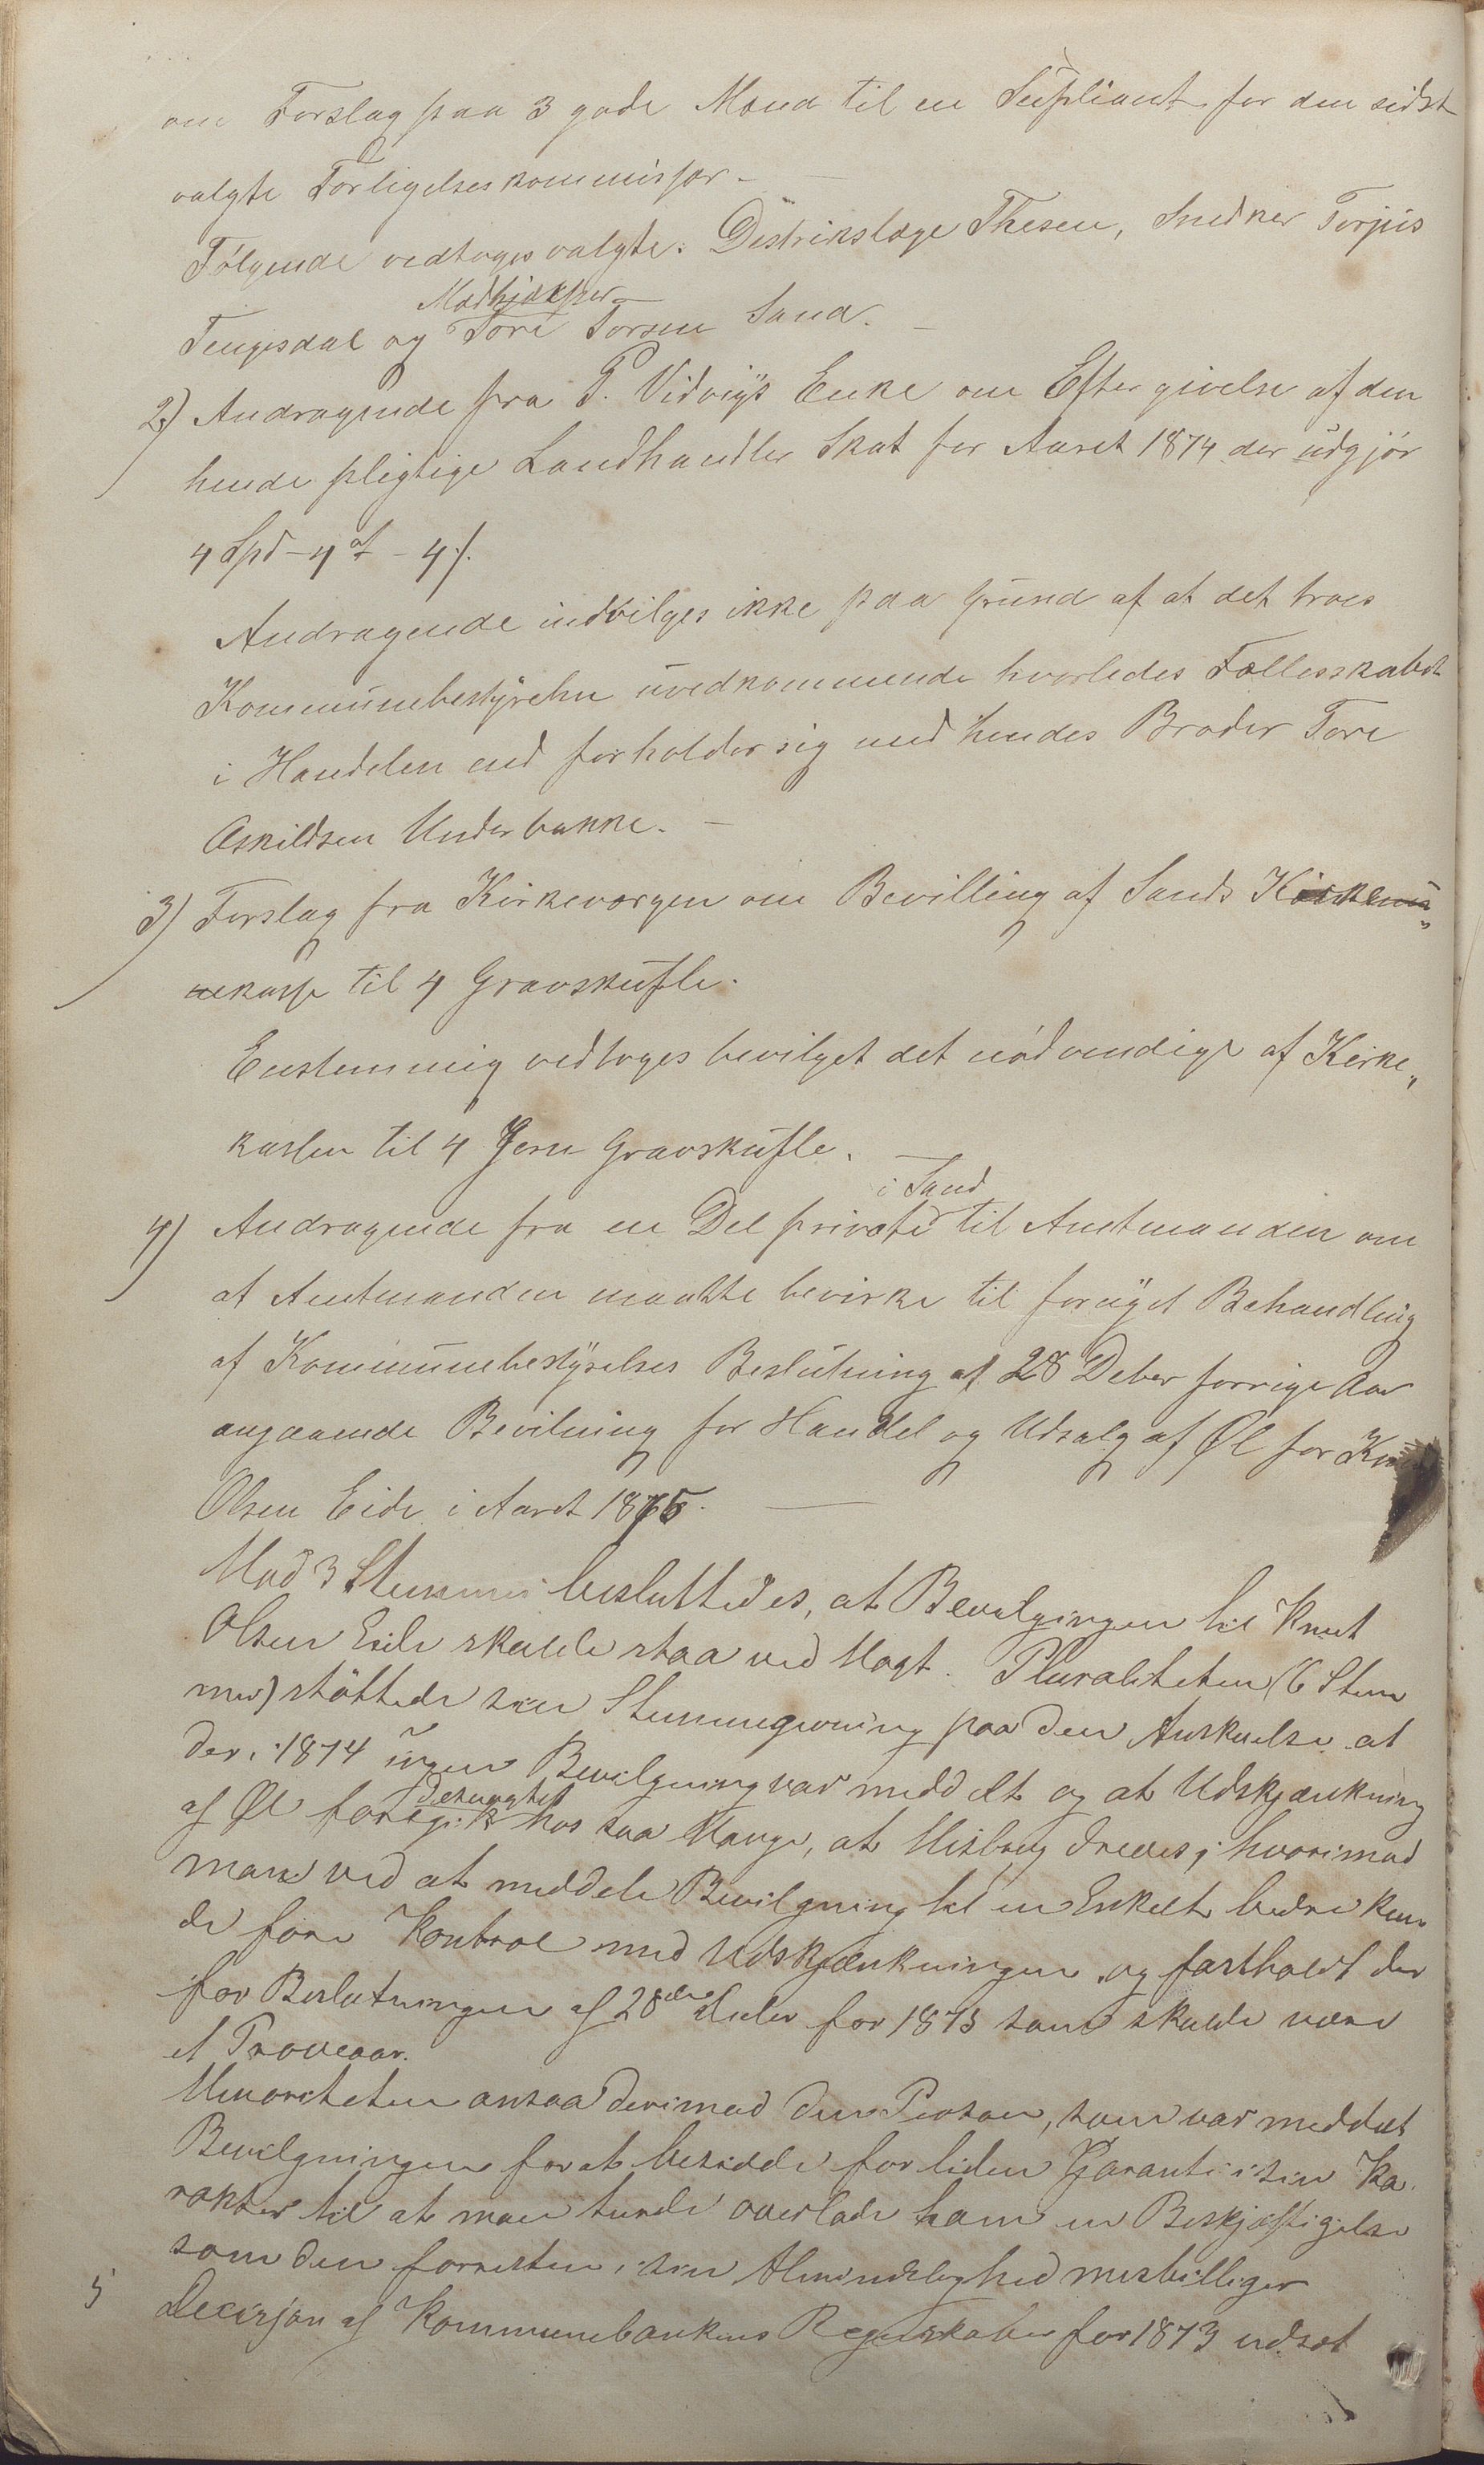 om Forslag paa 3 gode Mænd til en Supliant for den sidst
valgte Forligelseskommissær. –
Følgende vedtoges valgte: Distrikslæge Thesen, Snedker Torjus
Medhjælper
Tengesdal og Tore Torsen Sand. –
2) Andragende fra P. Vidvigs Enke om Eftergivelse af den
hende pligtige Landhandler Skat for Aaret 1874 der udgjør
4 Spd – 4 ort – 4 s.
Andragende indvilges ikke paa Grund af at det troes
Kommunebestyrelsen uvedkommende hvorledes Fællesskabet
i Handelen end forholder sig med hendes Broder Tore
Askildsen Underbakke. –
3) Forslag fra Kirkeværgen om Bevilling af Sands
kasse til 4 Gravskufle.
Enstemmig vedtoges bevilget det nødvendige af Kirke„
kassen til 4 Jern Gravskufle.
i Sand
4) Andragende fra en Del private til Amtmanden om
at Amtmanden maatte bevirke til fornyet Behandling
af Kommunebestyrelses Beslutning af 28 Deber forrige Aar
angaaende Bevilning for Handel og Udsalg af Øl for
Olsen Eide i Aaret 1875. –
Mod 3 Stemmer besluttedes, at Bevilgningen til Knut
Olsen Eide skulde staa ved Magt. Pluraliteten (6 Stem
mer) støttede sin Stemmegivning paa den Anskuelse at
der i 1874 ingen Bevilgning var meddelt og at Udskjænkning
desuagtet
af Øl foregik hos saa Mange, at Misbrug dreves; hvorimod
man ved at meddele Bevilgning til en Enkelt bedre kun
de føre Kontrol med Udskjænkningen og fastholdt der
for Beslutningen af 28de Decbr for 1875 som skulde være
et Prøveaar.
Minoriteten ansaa derimod den Person, som var meddelt
Bevilgningen for at besidde for liden Garanti i sin Ka
rakter til at man turde overlade ham en Beskjæftigelse
som den forresten i sin Almindelighed misbilliger
5 Decisjon af Kommunebankens Regnskaber for 1873 udsat